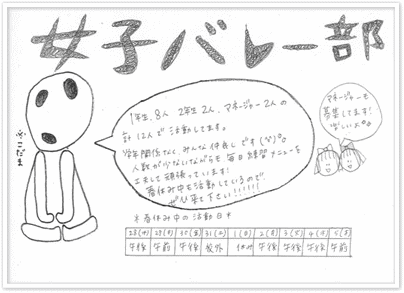 女子バレー部
1年生、8人 2年生2人、マネージャー2人の
計12人で活動してます。
学年関係なく、みんな仲良しです
人数が少ないながらも毎日練習メニューを
工夫して頑張っています!
春休み中も活動しているので
ぜひ来て下さい!!!!!!
マネージャーも
募集してます!
楽しいよ
こだま
春休み中の活動日
28(木) 29(金) 30(土) 31(日) 1(月) 2(火) 3(水) 4(木) 5(金)
午後 午前 午後 校外 休み 午後 午後 午後 午前